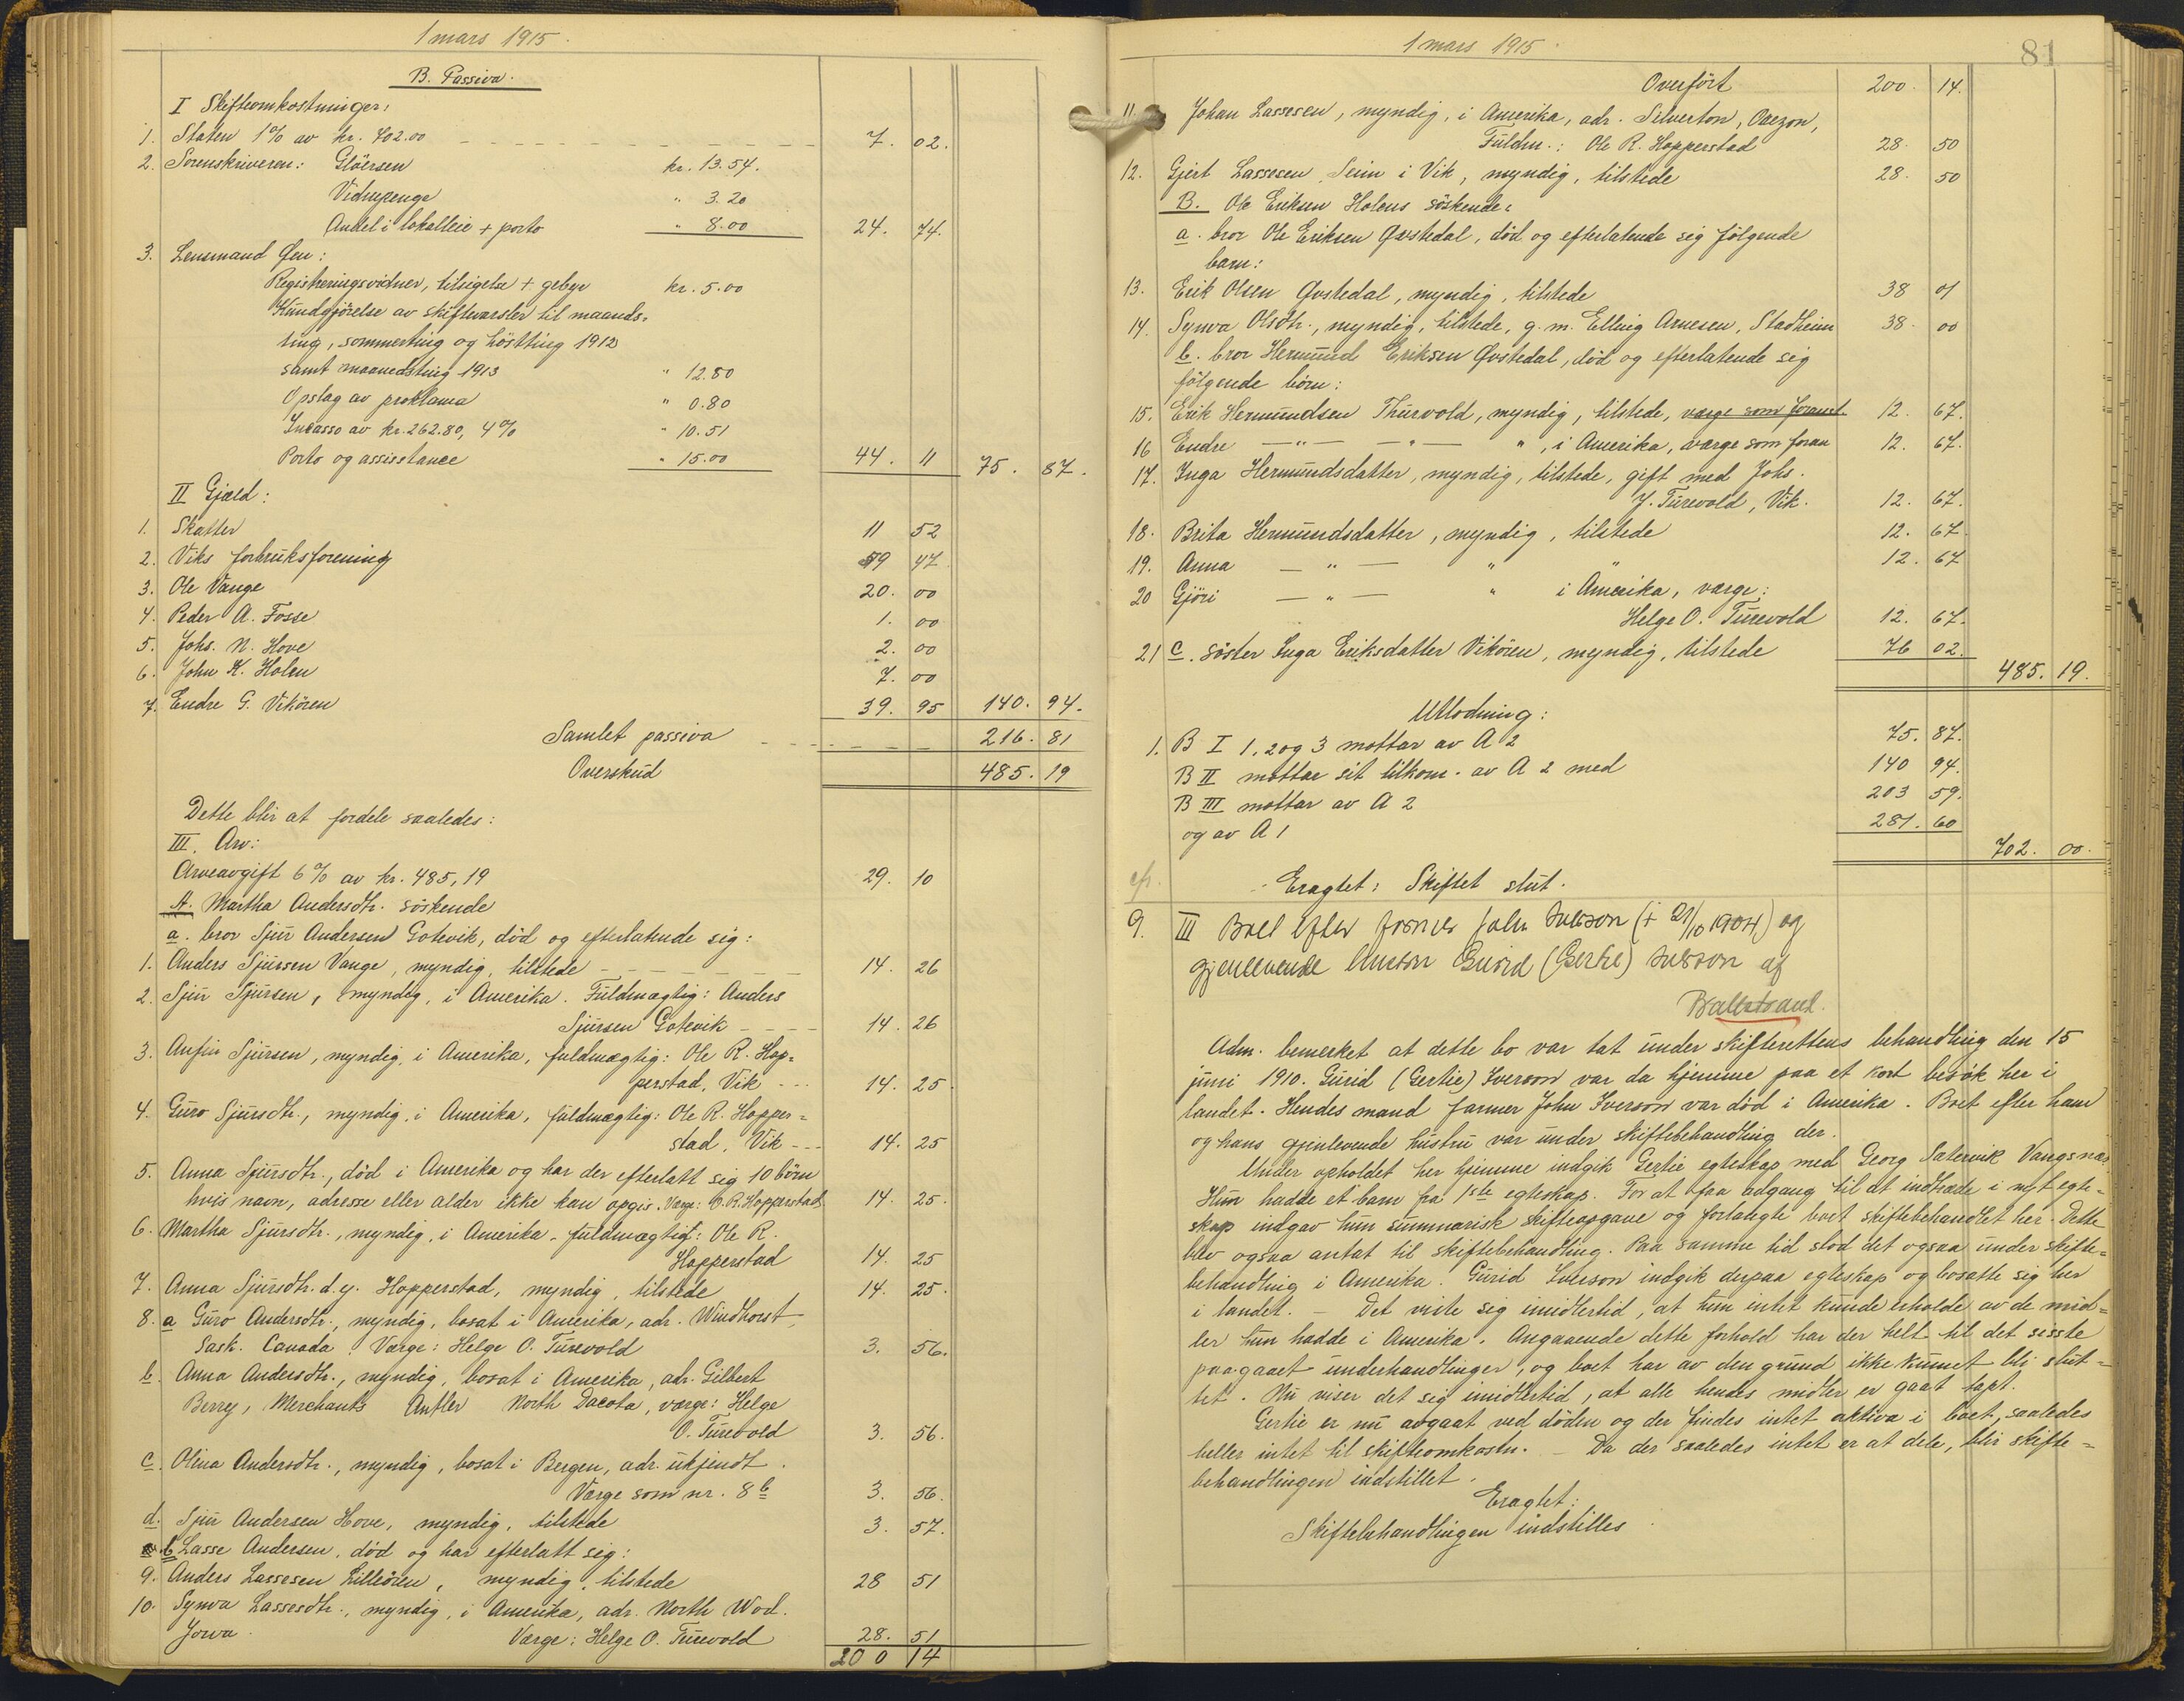 1 mars 1915.
B. Passiva.
I Skifteomkostninger:
1. Staten 1% av kr. 702.00 7. 02.
2. Sorenskriveren: Glöersen kr. 13.54.
Vidnepenge " 3.20
Andel i lokalleie + porto " 8.00 24. 74.
3. Lensmand Øen:
Registreringsvidner, tilsigelse + gebyr kr. 5.00
Kundgjörelse av skiftevarsler til maands-
ting, sommerting og höstting 1912
samt maanedsting 1913 " 12.80
Opslag av proklama " 0.80
Inkasso av kr. 262.80, 4% " 10.51
Porto og assisstance " 15.00 44. 11 75. 87.
II Gjæld:
1. Skatter 11 52
2. Viks forbruksforening 59 47
3. Ole Vange 20. 00
4. Peder A. Fosse 1. 00
5. Johs. N. Hove 2. 00
6. John K. Holen 7. 00
7. Endre G. Vikören 39. 95 140. 94.
Samlet passiva 216. 81
Overskud 485. 19
Dette blir at fordele saaledes:
III. Arv:
Arveavgift 6% av kr. 485,19 29. 10
A. Martha Andersdtr. söskende
a. bror Sjur Andersen Gotevik, död og efterlatende sig:
1. Anders Sjursen Vange, myndig, tilstede 14. 26
2. Sjur Sjursen, myndig, i Amerika. Fuldmægtig: Anders
Sjursen Gotevik 14. 26
3. Anfin Sjursen, myndig, i Amerika, fuldmægtig: Ole R. Hop-
perstad, Vik 14. 25
4. Guro Sjursdtr., myndig, i Amerika, fuldmægtig: Ole R. Hopper-
stad, Vik 14. 25
5. Anna Sjursdtr., död i Amerika og har der efterlatt sig 10 börn
hvis navn, adresse eller alder ikke kan opgis. Værge: O.R. Hopperstad 14. 25.
6. Martha Sjursdtr., myndig, i Amerika. fuldmægtig: Ole R.
Hopperstad 14. 25
7. Anna Sjursdtr. d.y. Hopperstad, myndig, tilstede 14. 25.
8. a Guro Andersdtr., myndig, bosat i Amerika, adr. Windhorst,
Sask. Canada. Værge: Helge O. Turvold 3. 56.
b. Anna Andersdtr., myndig, bosat i Amerika, adr. Gilbert
Berry, Merchants Antler North Dacota, værge: Helge
O. Turvold 3. 56.
c. Olina Andersdtr., myndig, bosat i Bergen, adr. ukjendt.
Værge som nr. 8 b 3. 56.
d. Sjur Andersen Hove, myndig, tilstede 3. 57.
b Lasse Andersen, död og har efterlatt sig:
9. Anders Lassesen Lilleören, myndig, tilstede 28 51
10. Synva Lassesdtr., myndig, i Amerika, adr. North Wod.
Jowa. Værge: Helge O. Turvold 28. 51
200 14
1 mars 1915.
81
Overfört 200. 14.
11. Johan Lassesen, myndig, i Amerika, adr. Silverton, Oregon,
Fuldm.: Ole R. Hopperstad 28. 50
12. Gjert Lassesen Seim i Vik, myndig, tilstede 28. 50
B. Ole Eriksen Holens söskende:
a. bror Ole Eriksen Øvstedal, död og efterlatende sig fölgende
barn:
13. Erik Olsen Øvstedal, myndig, tilstede 38 01
14. Synva Olsdtr., myndig, tilstede, g.m. Elling Arnesen, Stadheim 38. 00
b. bror Hermund Eriksen Øvstedal, död og efterlatende sig
fölgende börn:
15. Erik Hermundsen Thurvold, myndig, tilstede, værge som forant. 12. 67.
16 Endre — " — — " — ", i Amerika, værge som foran 12. 67.
17. Inga Hermundsdatter, myndig, tilstede, gift med Johs.
J. Turvold, Vik. 12. 67.
18. Brita Hermundsdatter, myndig, tilstede 12. 67.
19. Anna — " — " " 12. 67
20 Gjöri — " — " i Amerika, værge:
Helge O. Turvold 12. 67.
21 c. söster Inga Eriksdatter Vikören, myndig, tilstede 76 02.
485. 19.
Utlodning:
1. B I 1, 2 og 3 mottar av A 2 75. 87.
B II mottar sit tilkom. av A 2 med 140 94.
B III mottar av A 2 203 59.
og av A 1 281. 60
702. 00.
Eragtet: Skiftet slut.
9. III Boet efter farmer John Iverson († 21/10 1904) og
gjenlevende Gurid (Gertie) Iverson af
Balestrand.
Adm. bemerket at dette bo var tat under skifterettens behandling den 15
juni 1910. Gurid (Gertie) Iverson var da hjemme paa et kort besök her i
landet. Hendes mand farmer John Iverson var död i Amerika. Boet efter ham
og hans gjenlevende hustru var under skiftebehandling der.
Under opholdet her hjemme indgik Gertie egteskap med Georg Sælervik Vangsnæs.
Hun hadde et barn fra 1ste egteskap. For at faa adgang til at indtræde i nyt egte-
skap indgav hun summarisk skifteopgave og forlangte boet skiftebehandlet her. Dette
blev ogsaa antat til skiftebehandling. Paa samme tid stod det ogsaa under skifte-
behandling i Amerika. Gurid Iverson indgik derpaa egteskap og bosatte sig her
i landet. – Det viste sig imidlertid, at hun intet kunde erholde av de mid-
ler hun hadde i Amerika. Angaaende dette forhold har der helt til det sisste
paagaaet underhandlinger, og boet har av den grund ikke kunnet bli slut-
tet. Nu viser det sig imidlertid, at alle hendes midler er gaat tapt.
Gertie er nu avgaat ved döden og der findes intet aktiva i boet, saaledes
heller intet til skifteomkostn. – Da der saaledes intet er at dele, blir skifte-
behandlingen indstillet.
Eragtet:
Skiftebehandlingen indstilles.